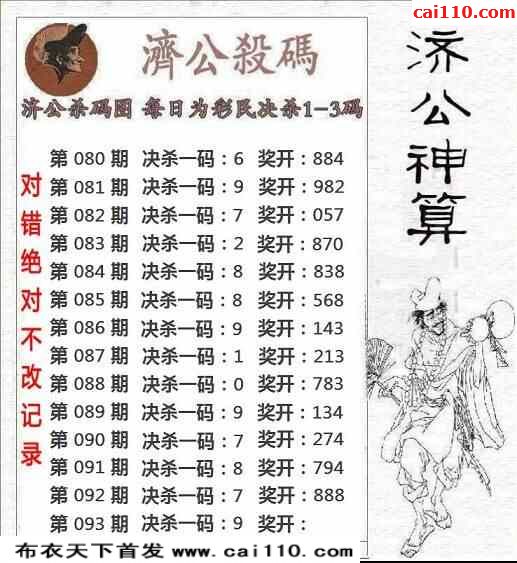 cai110.com
濟公殺碼
济公杀码图 每日为彩民决杀1-3码
第 080 期 决杀一码：6 奖开：884
第 081 期 决杀一码：9 奖开：982
第 082 期 决杀一码：7 奖开：057
第 083 期 决杀一码：2 奖开：870
第 084 期 决杀一码：8 奖开：838
第 085 期 决杀一码：8 奖开：568
第 086 期 决杀一码：9 奖开：143
第 087 期 决杀一码：1 奖开：213
第 088 期 决杀一码：0 奖开：783
第 089 期 决杀一码：9 奖开：134
第 090 期 决杀一码：7 奖开：274
第 091 期 决杀一码：8 奖开：794
第 092 期 决杀一码：7 奖开：888
第 093 期 决杀一码：9 奖开：
对错绝对不改记录
济公神算
布衣天下首发 www.cai110.com